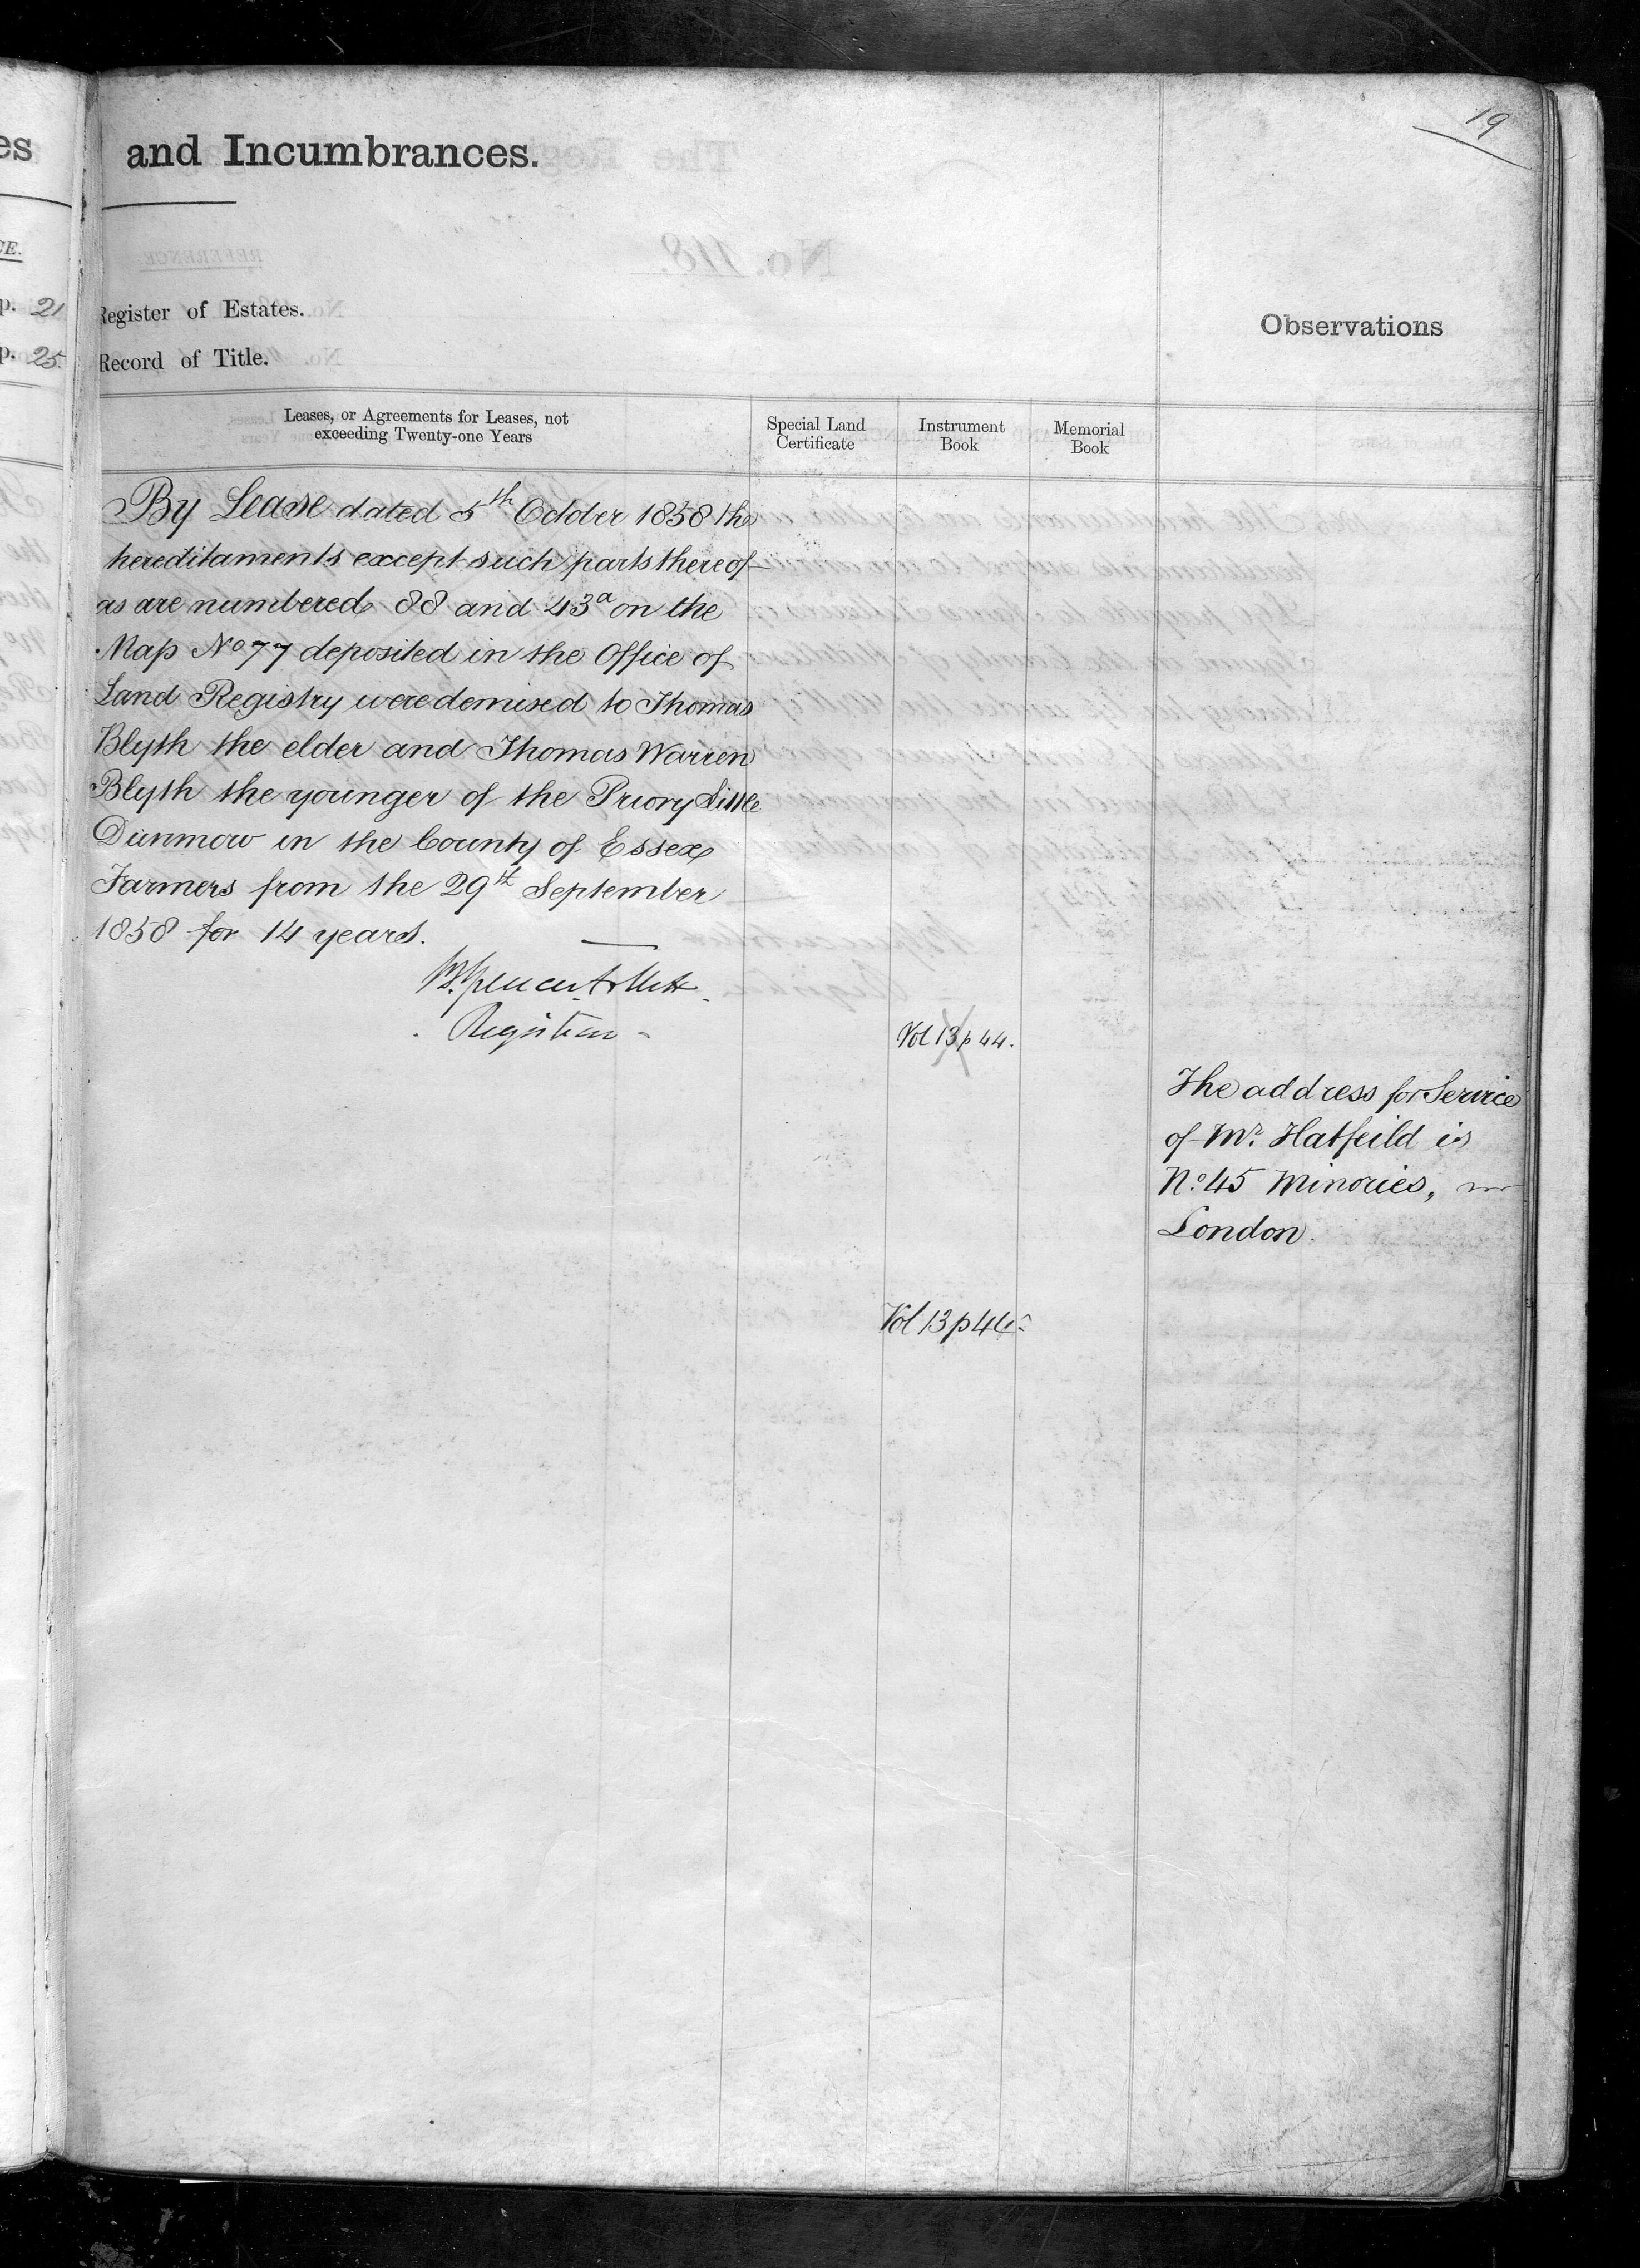 19
es
and Incumbrances.
CE.
p. 21
p. 25.
Register of Estates.
Record of Title.
Observations
Leases, or Agreements for Leases, not
exceeding Twenty-one Years
Special Land
Certificate
Instrument
Book
Memorial
Book
By Lease dated 5th October 1858 the
hereditaments except such parts thereof
as are numbered 88 and 43a on the
Map No 77 deposited in the Office of
Land Registry were demised to Thomas
Blyth the elder and Thomas Warren
Blyth the younger of the Priory Little
Dunmow in the County of Essex
Farmers from the 29th September
1858 for 14 years.
Registrar
Vol 13 p 44.
The address for Service
of Mr. Hatfeild is
No. 45 Minories,
London.
Vol 13 p 44